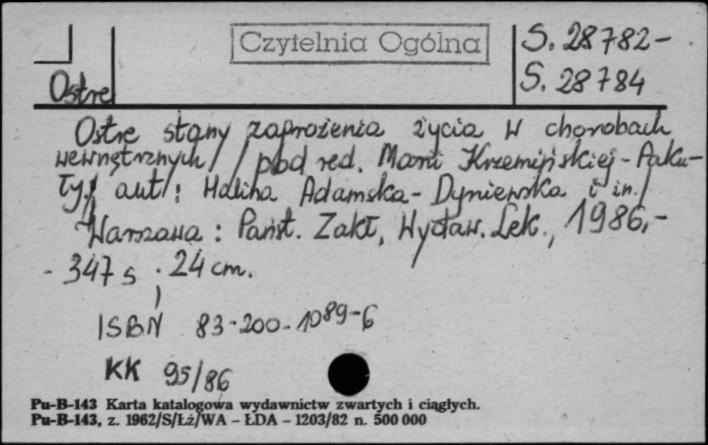 Czytelnia Ogólna
S. 28782-
S. 28784
Ostre
Ostre stany zagrożenia życia w chorobach
wewnętrznych / pod red. Marii Krzemińskiej-Paku-
ły; aut.: Halina Adamska-Dyniewska i in.
Warszawa: Państ. Zakł. Wydaw. Lek., 1986.-
- 347 s ; 24 cm.
ISBN 83-200-1089-6
KK 95/86
Pu-B-143 Karta katalogowa wydawnictw zwartych i ciągłych.
Pu-B-143, z. 1962/S/Łż/WA – ŁDA – 1203/82 n. 500 000